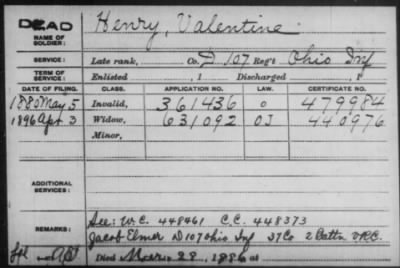 DEAD
NAME OF SOLDIER: Henry, Valentine
SERVICE: Late rank, Co. D 107 Reg't Ohio Inf
TERM OF SERVICE: Enlisted , 1 Discharged , 1
DATE OF FILING. CLASS. APPLICATION NO. LAW. CERTIFICATE NO.
1880 May 5 Invalid, 361436 O 479984
1896 Apr 3 Widow, 631092 OJ 440976
Minor,
ADDITIONAL SERVICES:
See: W.C. 448461 C.C. 448373
REMARKS: Jacob Elmer D 107 Ohio Inf 37 Co 2 Battn V.R.C.
Died 28, 1886 at